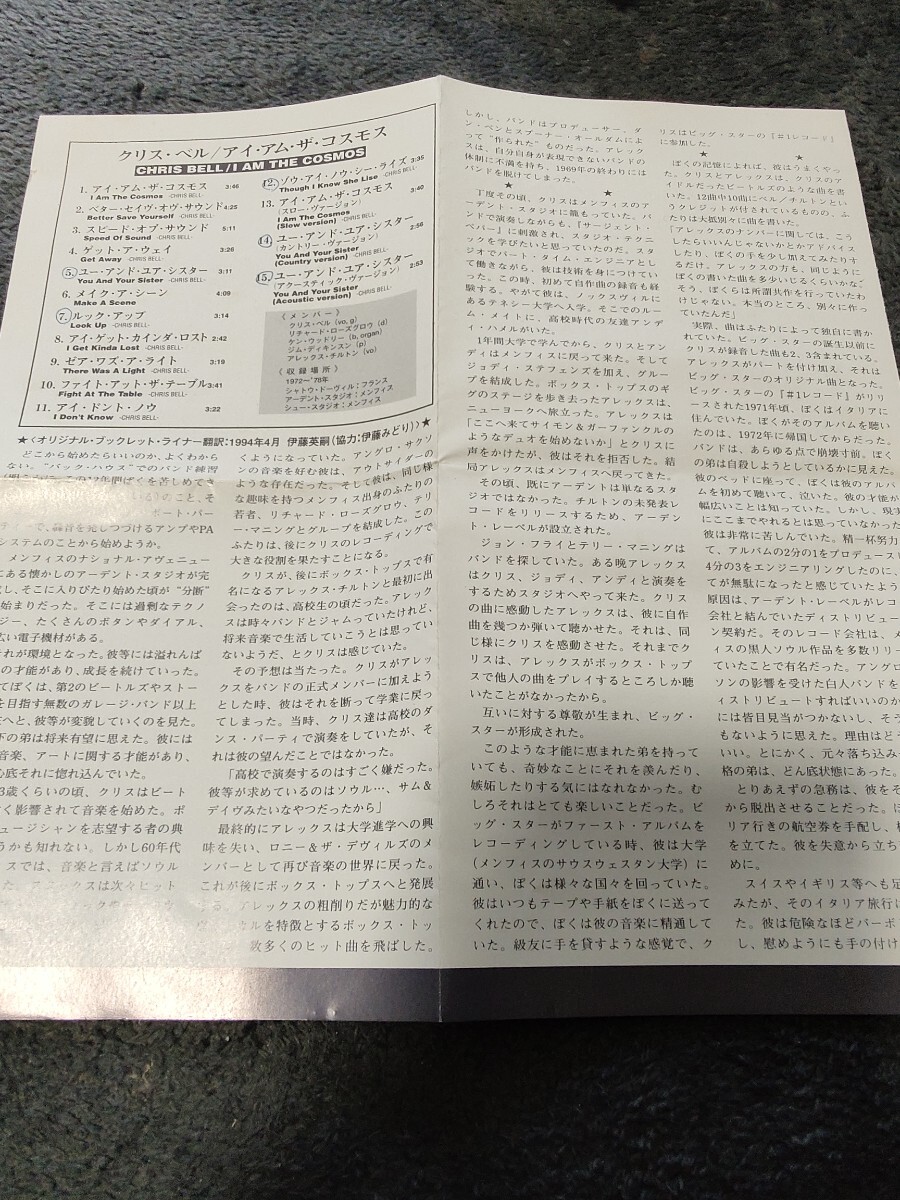 クリス・ベル/アイ・アム・ザ・コスモス
CHRIS BELL/I AM THE COSMOS
1. アイ・アム・ザ・コスモス 3:46
I Am The Cosmos -CHRIS BELL-
2. ベター・セイヴ・オヴ・サウンド 4:25
Better Save Yourself -CHRIS BELL-
3. スピード・オブ・サウンド 5:11
Speed Of Sound -CHRIS BELL-
4. ゲット・アウェイ 3:26
Get Away -CHRIS BELL-
5. ユー・アンド・ユア・シスター 3:11
You And Your Sister -CHRIS BELL-
6. メイク・ア・シーン 4:09
Make A Scene -CHRIS BELL-
7. ルック・アップ 3:14
Look Up -CHRIS BELL-
8. アイ・ゲット・カインダ・ロスト 2:42
I Get Kinda Lost -CHRIS BELL-
9. ゼア・ワズ・ア・ライト 3:19
There Was A Light -CHRIS BELL-
10. ファイト・アット・ザ・テーブル 3:41
Fight At The Table -CHRIS BELL-
11. アイ・ドント・ノウ 3:22
I Don't Know -CHRIS BELL-
12. ゾウ・アイ・ノウ・シー・ライズ 3:35
Though I Know She Lise -CHRIS BELL-
13. アイ・アム・ザ・コスモス 3:40
(スロー・ヴァージョン)
I Am The Cosmos
(Slow version) -CHRIS BELL-
14. ユー・アンド・ユア・シスター 2:56
(カントリー・ヴァージョン)
You And Your Sister
(Country version) -CHRIS BELL-
15. ユー・アンド・ユア・シスター 2:53
(アクースティック・ヴァージョン)
You And Your Sister
(Acoustic version) -CHRIS BELL-
《メンバー》
クリス・ベル (vo, g)
リチャード・ローズグロウ (d)
ケン・ウッドリー (b, organ)
ジム・ディキンスン (p)
アレックス・チルトン (vo)
《収録場所》
1972〜'78年
シャトウ・ドーヴィル:フランス
アーデント・スタジオ:メンフィス
シュー・スタジオ:メンフィス
★〈オリジナル・ブックレット・ライナー翻訳:1994年4月 伊藤英嗣(協力:伊藤みどり)〉★
どこから始めたらいいのか、よくわから
ない。"バック・ハウス"でのバンド練習
の17年間ぼくを苦しめてき
いる)のこと、そ
ポート・バー
で、轟音を発しつづけるアンプやPA
システムのことから始めようか。
メンフィスのナショナル・アヴェニュー
にある懐かしのアーデント・スタジオが完
し、そこに入りびたり始めた頃が"分断"
始まりだった。そこには過剰なテクノ
ジー、たくさんのボタンやダイアル、
広い電子機材がある。
それが環境となった。彼等には溢れんば
の才能があり、成長を続けていった。
てぼくは、第2のビートルズやストー
を目指す無数のガレージ・バンド以上
へと、彼等が変貌していくのを見た。
下の弟は将来有望に思えた。彼には
音楽、アートに関する才能があり、
心底それに惚れ込んでいた。
3歳くらいの頃、クリスはビート
く影響されて音楽を始めた。ポ
ュージシャンを志望する者の典
うかも知れない。しかし60年代
スでは、音楽と言えばソウル
た。アニックスは次々ヒット
くようになっていた。アングロ・サクソ
ンの音楽を好む彼は、アウトサイダーの
ような存在だった。そして彼は、同じ様
な趣味を持つメンフィス出身のふたりの
若者、リチャード・ローズグロウ、テリ
ー・マニングとグループを結成した。この
ふたりは、後にクリスのレコーディングで
大きな役割を果たすことになる。
クリスが、後にボックス・トップスで有
名になるアレックス・チルトンと最初に出
会ったのは、高校生の頃だった。アレック
スは時々バンドとジャムっていたけれど、
将来音楽で生活していこうとは思ってい
ないようだ、とクリスは感じていた。
その予想は当たった。クリスがアレッ
クスをバンドの正式メンバーに加えよう
とした時、彼はそれを断って学業に戻っ
てしまった。当時、クリス達は高校のダ
ンス・パーティで演奏をしていたが、そ
れは彼の望んだことではなかった。
「高校で演奏するのはすごく嫌だった。
彼等が求めているのはソウル…、サム&
デイヴみたいなやつだったから」
最終的にアレックスは大学進学への興
味を失い、ロニー&ザ・デヴィルズのメ
ンバーとして再び音楽の世界に戻った。
これが後にボックス・トップスへと発展
する。アレックスの粗削りだが魅力的な
ウルを特徴とするボックス・トッ
数多くのヒット曲を飛ばした。
しかし、バンドはプロデューサー、ダ
ン・ペンとスプーナー・オールダムによ
って"作られた"ものだった。アレック
スは、自分自身が表現できないバンドの
体制に不満を持ち、1969年の終わりには
バンドを脱けてしまった。
★ ★ ★
丁度その頃、クリスはメンフィスのア
ーデント・スタジオに籠もっていた。バ
ンドで演奏しながらも、『サージェント・
ペパー』に刺激され、スタジオ・テクニ
ックを学びたいと思っていたのだ。スタ
ジオでパート・タイム・エンジニアとし
て働きながら、彼は技術を身につけてい
った。この時、初めて自作曲の録音も経
験する。やがて彼は、ノックスヴィルに
あるテネシー大学へ入学。そこでのルー
ム・メイトに、高校時代の友達アンデ
ィ・ハメルがいた。
1年間大学で学んでから、クリスとアン
ディはメンフィスに戻って来た。そして
ジョディ・ステフェンズを加え、グルー
プを結成した。ボックス・トップスのギ
グのステージを歩き去ったアレックスは、
ニューヨークへ旅立った。アレックスは
「ここへ来てサイモン&ガーファンクルの
ようなデュオを始めないか」とクリスに
声をかけたが、彼はそれを拒否した。結
局アレックスはメンフィスへ戻ってきた。
その頃、既にアーデントは単なるスタ
ジオではなかった。チルトンの未発表レ
コードをリリースするため、アーデン
ト・レーベルが設立された。
ジョン・フライとテリー・マニングは
バンドを探していた。ある晩アレックス
はクリス、ジョディ、アンディと演奏を
するためスタジオへやって来た。クリス
の曲に感動したアレックスは、彼に自作
曲を幾つか弾いて聴かせた。それは、同
じ様にクリスを感動させた。それまでク
リスは、アレックスがボックス・トップ
スで他人の曲をプレイするところしか聴
いたことがなかったから。
互いに対する尊敬が生まれ、ビッグ・
スターが形成された。
このような才能に恵まれた弟を持って
いても、奇妙なことにそれを羨んだり、
嫉妬したりする気にはなれなかった。む
しろそれはとても楽しいことだった。ビ
ッグ・スターがファースト・アルバムを
レコーディングしている時、彼は大学
(メンフィスのサウスウェスタン大学)に
通い、ぼくは様々な国々を回っていた。
彼はいつもテープや手紙をぼくに送って
くれたので、ぼくは彼の音楽に精通して
いた。級友に手を貸すような感覚で、ク
リスはビッグ・スターの『#1レコード』
に参加した。
ぼくの記憶によれば、彼はうまくやっ
た。クリスとアレックスは、クリスのア
イドルだったビートルズのような曲を書
いた。12曲中10曲にベル/チルトンとい
うクレジットが付されているものの、ふ
たりは大抵別々に曲を書いた。
「アレックスのナンバーに関しては、こう
したらいいんじゃないかとかアドバイス
したり、ぼくの手を少し加えてみたりす
るだけ。アレックスの方も、同じように
ぼくの書いた曲を多少いじるくらいかな。
そう、ぼくらは所謂共作を行っていたわ
けじゃない。本当のところ、別々に作っ
ていたんだ」
実際、曲はふたりによって独自に書か
れていた。ビッグ・スターの誕生以前に
クリスが録音した曲も2、3含まれている。
アレックスがパートを付け加え、それは
ビッグ・スターのオリジナル曲となった。
ビッグ・スターの『#1レコード』がリリ
ースされた1971年頃、ぼくはイタリアに
住んでいた。ぼくがそのアルバムを聴い
たのは、1972年に帰国してからだった。
バンドは、あらゆる点で崩壊寸前。ぼく
の弟は自殺しようとしているかに見えた。
彼のベッドに座って、ぼくは彼のアルバ
ムを初めて聴いて、泣いた。彼の才能が
幅広いことは知っていた。しかし、現実
にここまでやれるとは思っていなかった
彼は非常に苦しんでいた。精一杯努力
て、アルバムの2分の1をプロデュース
4分の3をエンジニアリングしたのに、
てが無駄になったと感じていたよう
原因は、アーデント・レーベルがレコ
会社と結んでいたディストリビュー
ン契約だ。そのレコード会社は、メ
ィスの黒人ソウル作品を多数リリー
ていたことで有名だった。アングロ
ソンの影響を受けた白人バンドを
ィストリビュートすればいいのか
には皆目見当がつかないし、そう
もないように思えた。理由はどう
いい。とにかく、元々落ち込み
格の弟は、どん底状態にあった。
とりあえずの急務は、彼をそ
から脱出させることだった。ぼ
リア行きの航空券を手配し、
を立てた。彼を失意から立ち
めに。
スイスやイギリス等へも足
みたが、そのイタリア旅行は
た。彼は危険なほどバーボ
し、慰めようにも手の付け